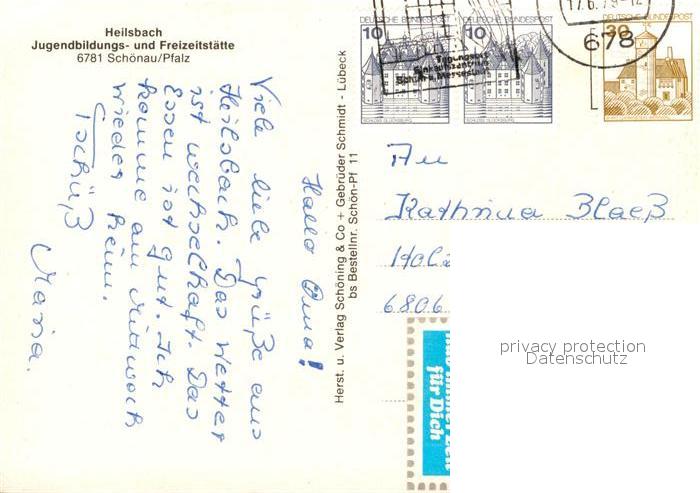 Heilsbach
Jugendbildungs- und Freizeitstätte
6781 Schönau/Pfalz
Hallo Oma!
Viele liebe Grüße aus
Heilsbach. Das Wetter
ist wechselhaft. Das
Essen ist gut. Ich
komme am Mittwoch
wieder heim.
Tschüß
Maria.
Herst. u. Verlag Schöning & Co + Gebrüder Schmidt - Lübeck
bs Bestellnr. Schön-Pf 11
DEUTSCHE BUNDESPOST
10
SCHLOSS GLÜCKSBURG
DEUTSCHE BUNDESPOST
10
SCHLOSS GLÜCKSBURG
DEUTSCHE BUNDESPOST
30
17.6.79-12
678
Tagungsort
Einkaufszentrum
Schuh u. Messestadt
An
Kathrina Blaeß
Holz
6806
für Dich
privacy protection
Datenschutz